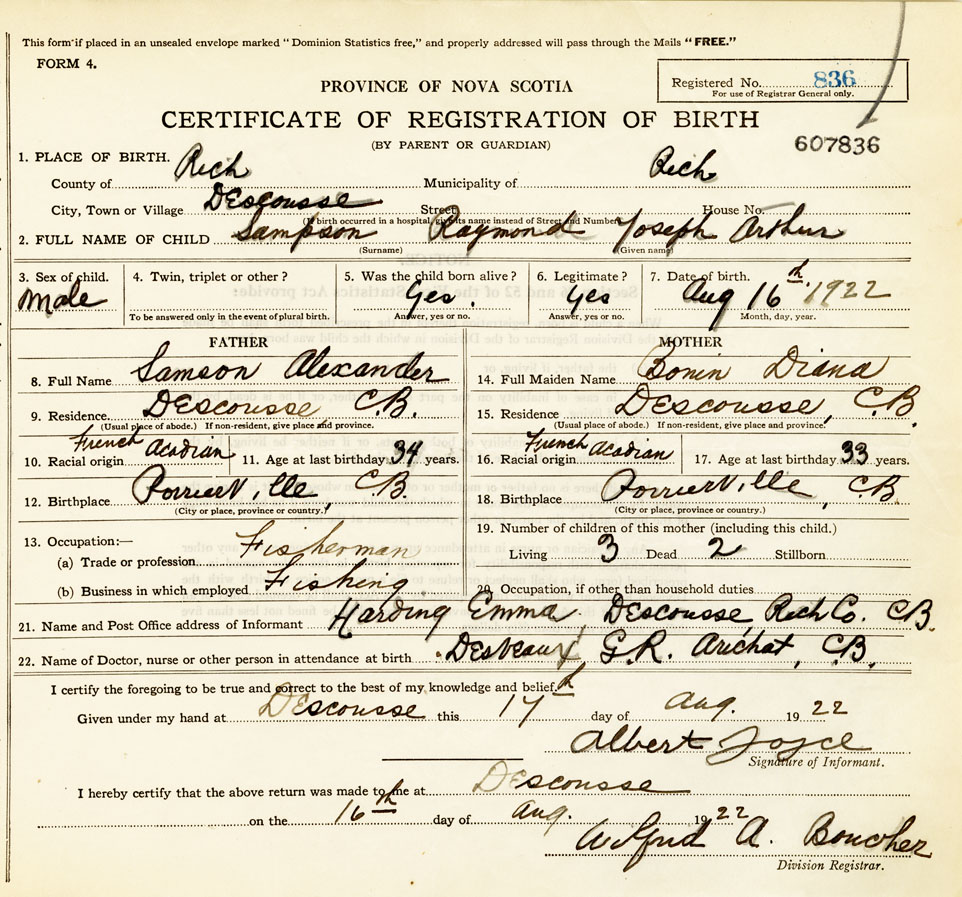 This form if placed in an unsealed envelope marked "Dominion Statistics free," and properly addressed will pass through the Mails "FREE."
FORM 4.
Registered No. 836
For use of Registrar General only.
PROVINCE OF NOVA SCOTIA
CERTIFICATE OF REGISTRATION OF BIRTH
(BY PARENT OR GUARDIAN)
607836
1. PLACE OF BIRTH.
County of Rich Municipality of Rich
City, Town or Village DEscousse Street House No.
(If birth occurred in a hospital, give its name instead of Street and Number)
2. FULL NAME OF CHILD Sampson Raymond Joseph Arthur
(Surname) (Given name)
3. Sex of child. 4. Twin, triplet or other ? 5. Was the child born alive ? 6. Legitimate ? 7. Date of birth.
Male Yes. Yes Aug 16th. 1922
To be answered only in the event of plural birth. Answer, yes or no. Answer, yes or no. Month, day, year.
FATHER
8. Full Name Samson Alexander
9. Residence DEscousse C.B.
(Usual place of abode.) If non-resident, give place and province.
10. Racial origin French Acadian 11. Age at last birthday 34 years.
12. Birthplace PoirrierVille C.B.
(City or place, province or country.)
13. Occupation:—
(a) Trade or profession Fisherman
(b) Business in which employed Fishing
MOTHER
14. Full Maiden Name Bonin Diana
15. Residence DEscousse, C.B.
(Usual place of abode.) If non-resident, give place and province.
16. Racial origin French Acadian 17. Age at last birthday 33 years.
18. Birthplace PoirrierVille, C.B
(City or place, province or country.)
19. Number of children of this mother (including this child.)
Living 3 Dead 2 Stillborn
20. Occupation, if other than household duties
21. Name and Post Office address of Informant Harding Emma, DEscousse, Rich Co. C.B.
22. Name of Doctor, nurse or other person in attendance at birth G.R. Arichat, C.B.
I certify the foregoing to be true and correct to the best of my knowledge and belief.
Given under my hand at DEscousse this 17th day of Aug. 1922
Albert Joyce
Signature of Informant.
I hereby certify that the above return was made to me at DEscousse
on the 16th day of Aug. 1922
Wilfrid A. Boucher
Division Registrar.